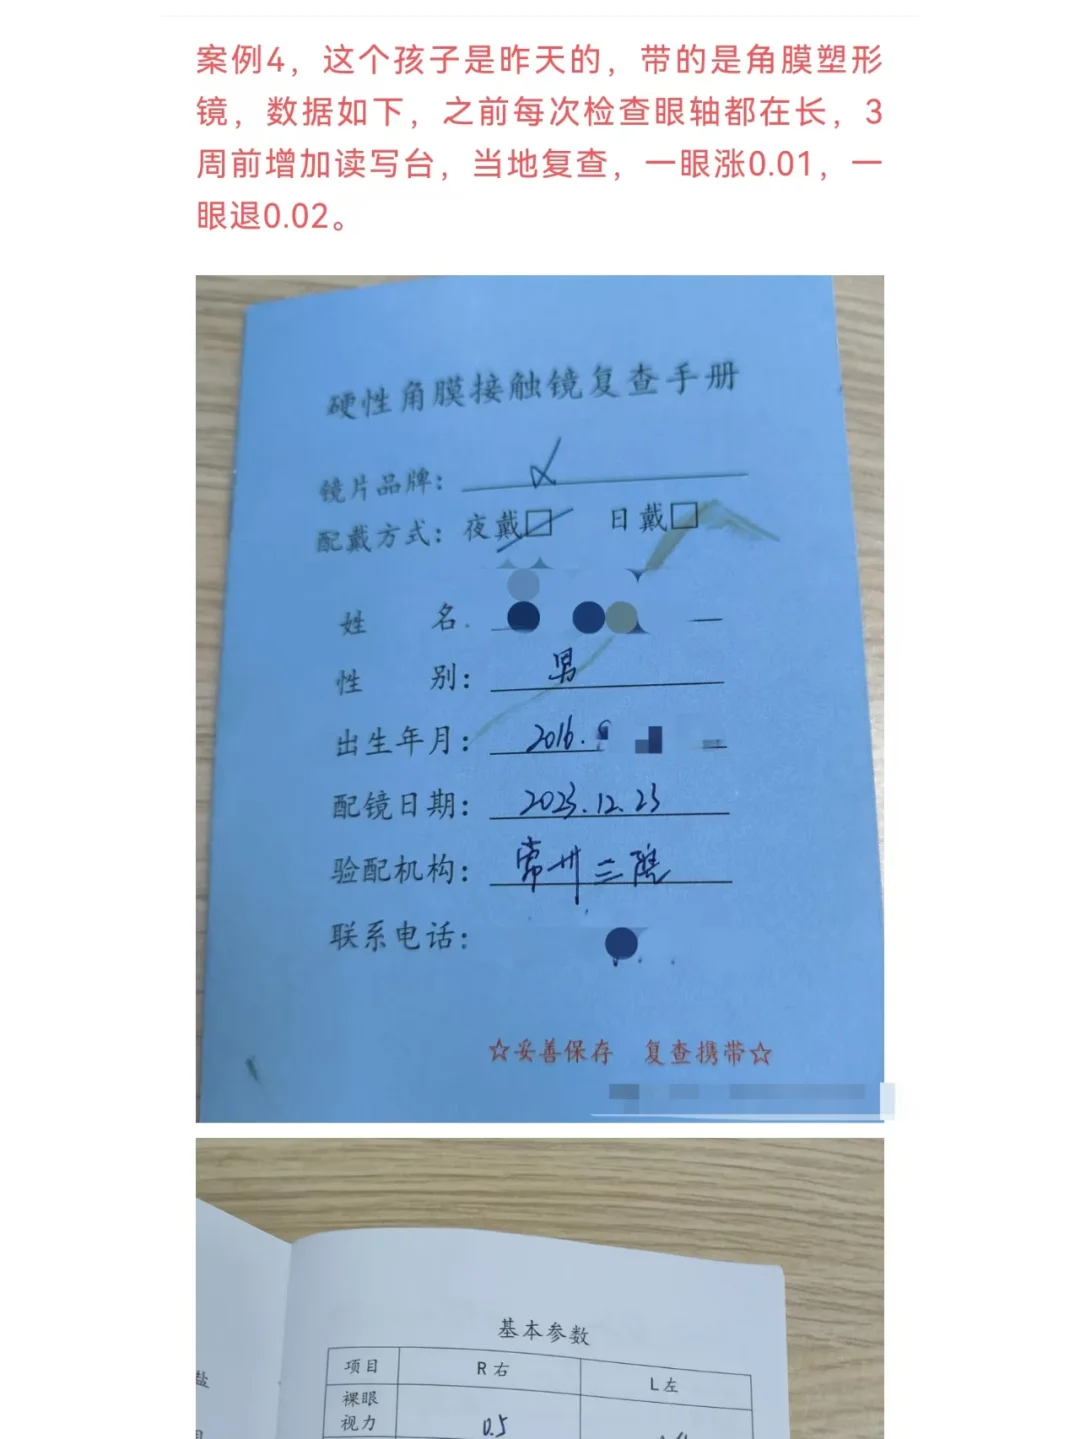 案例4，这个孩子是昨天的，带的是角膜塑形
镜，数据如下，之前每次检查眼轴都在长，3
周前增加读写台，当地复查，一眼涨0.01，一
眼退0.02。
硬性角膜接触镜复查手册
镜片品牌：α
配戴方式：夜戴□ 日戴□
姓 名
性 别：男
出生年月：2016.
配镜日期：2023.12.23
验配机构：常州三院
联系电话：
☆妥善保存 复查携带☆
基本参数
项目 R右 L左
裸眼
视力 0.5